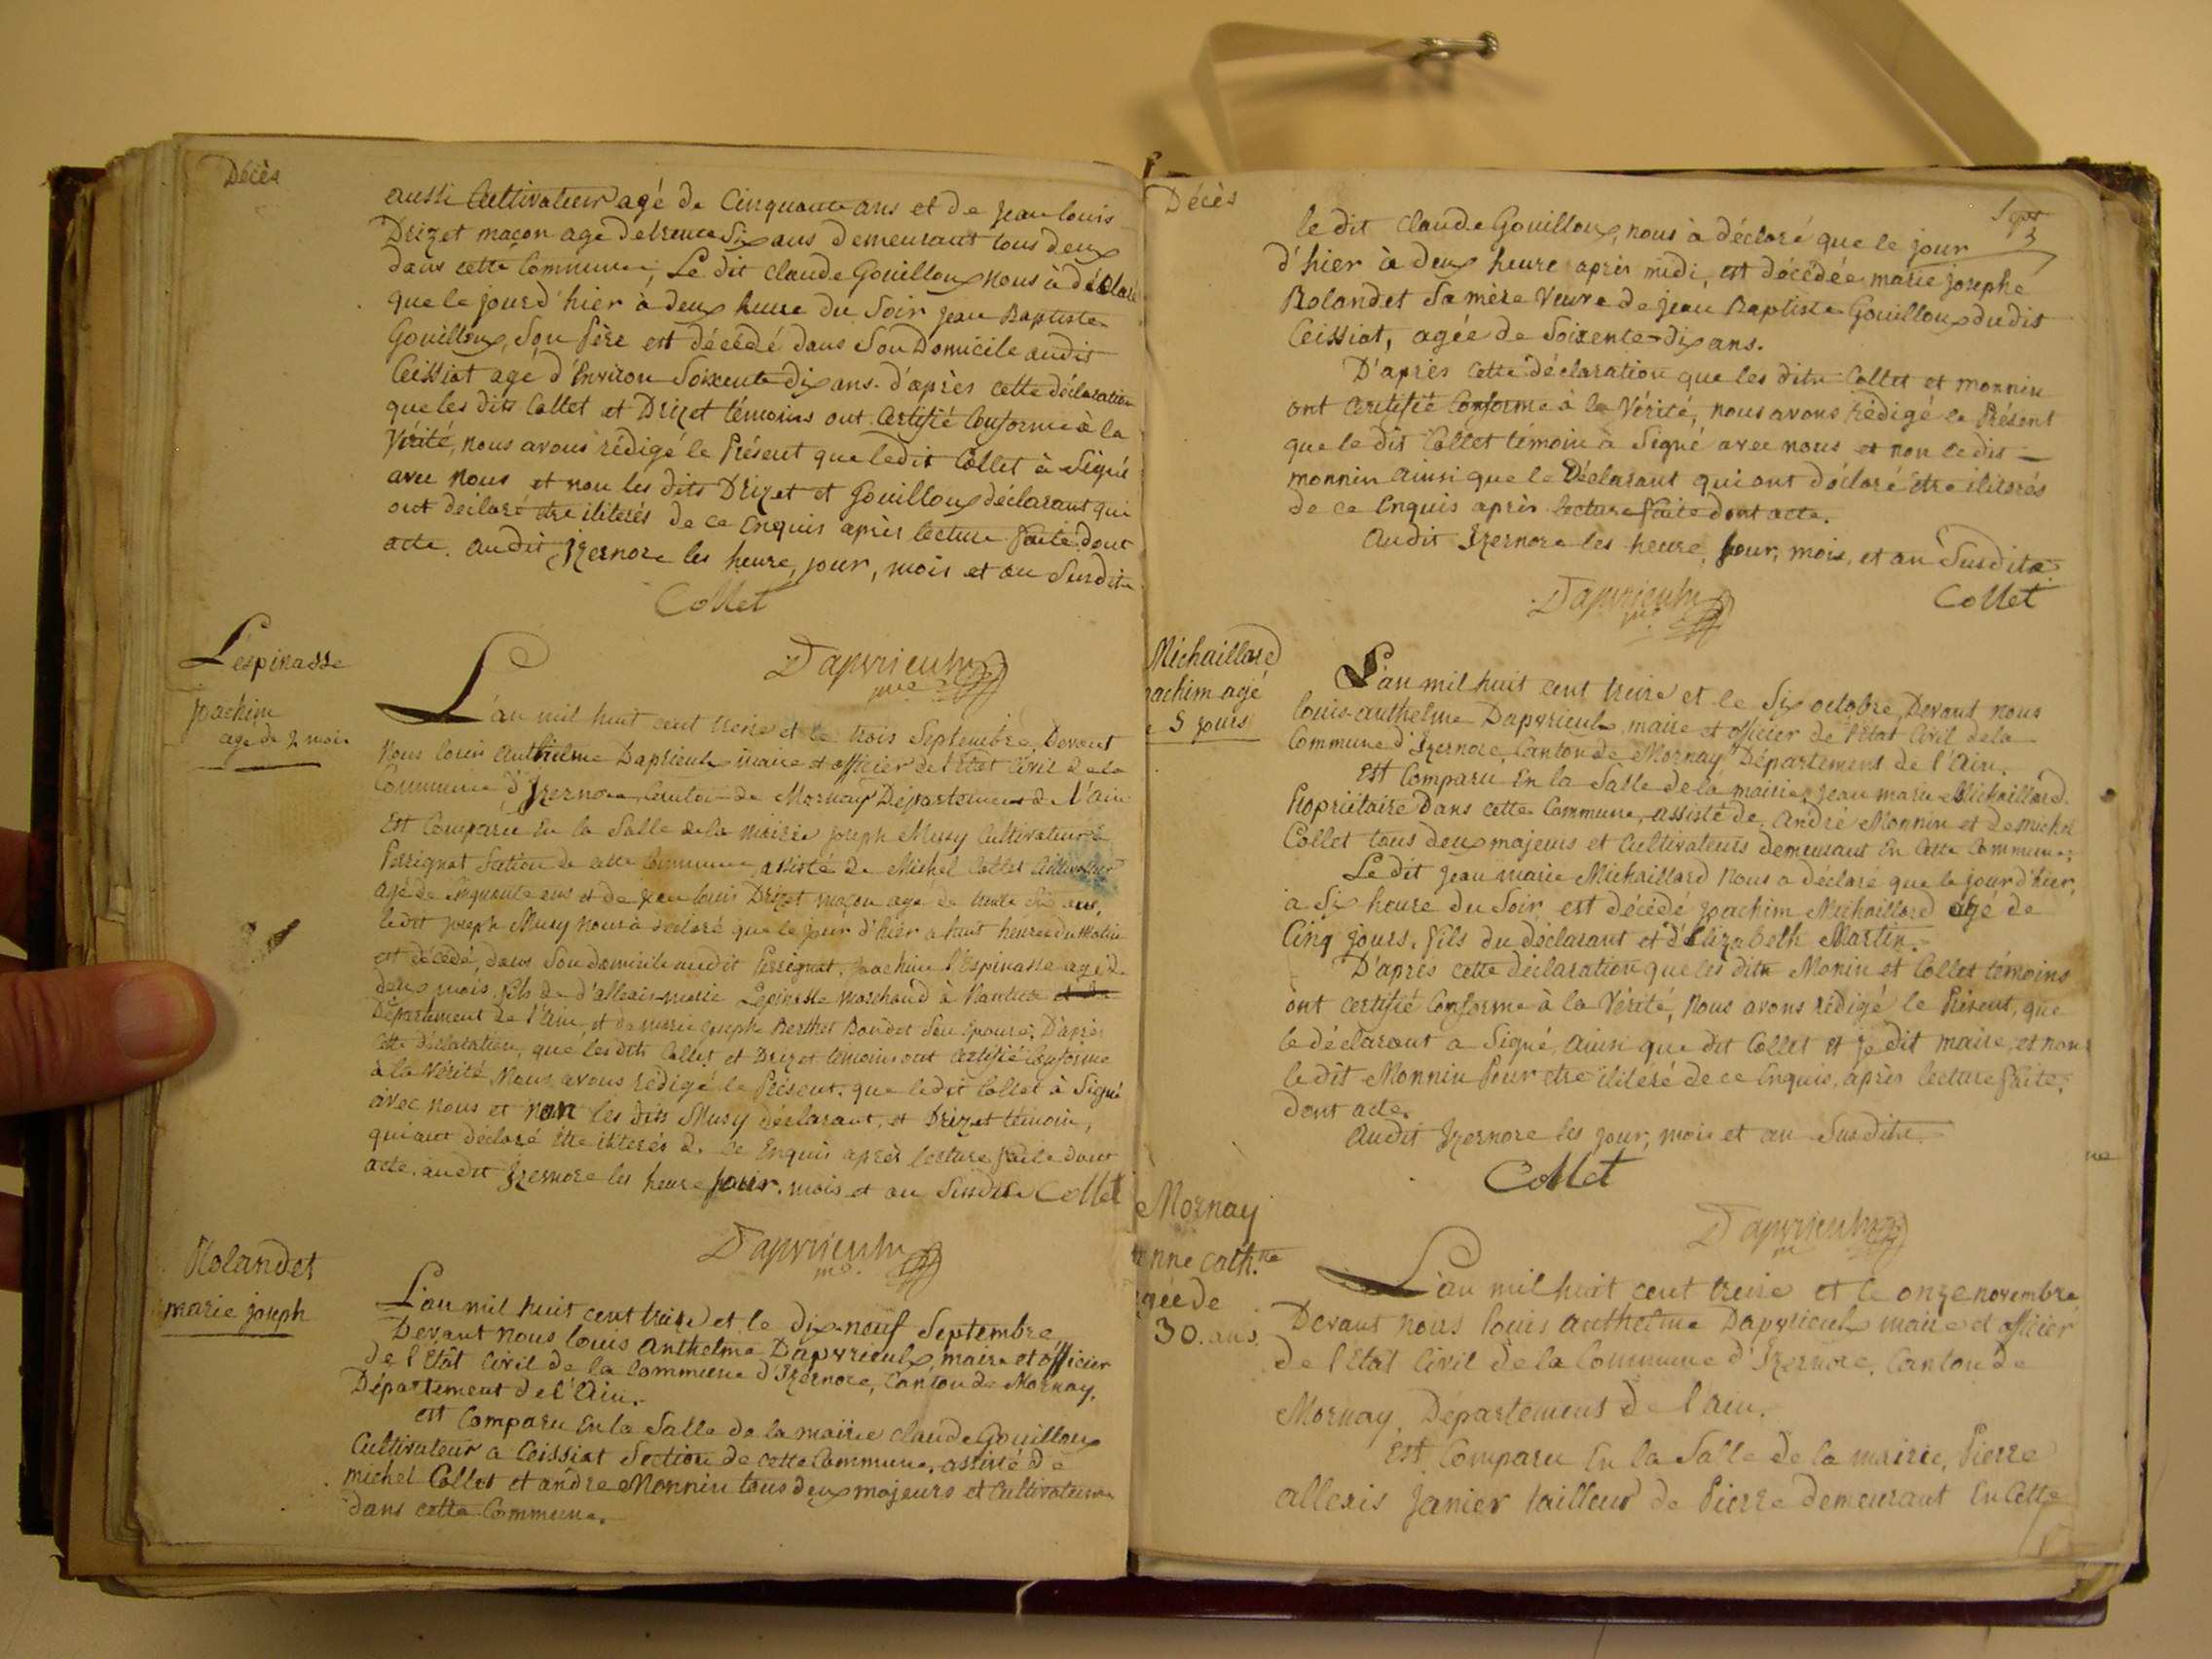 Décès
aussi Cultivateur agé de Cinquante ans et de jean louis
Drizet maçon agé de trente Six ans demeurant tous deux
dans cette Commune, Le dit claude Gouilloux nous à déclaré
que le jour d'hier à deux heure du Soir jean Baptiste
Gouilloux, Son Père est décédé dans Son Domicile audit
Ceissiat agé d'Environ Soixente dix ans. d'après cette déclaration
que les dits Collet et Drizet témoins ont Certifié Conforme à la
Vérité, nous avons rédigé le Présent que ledit Collet à Signé
avec nous et non les dits Drizet et Gouilloux déclarant qui
ont déclaré etre iliterés de ce Enquis après lecture faite dont
acte. audit Izernore les heure, jour, mois et an Susdits
Collet
Dapvrieulx
me
Lespinasse
joachim
agé de 2 mois
L'an mil huit cent treise et le trois Septembre, Devant
Nous louis Anthelme Dapvrieulx maire et officier de l'Etat Civil de la
Commune d'Izernore, Canton de Mornay Département de l'Ain
Est Comparu En la Salle de la mairie joseph Musy Cultivateur à
Perrignat Section de cette Commune assisté de Michel Collet Cultivateur
agé de Cinquante ans et de jean louis Drizet maçon agé de trente Six ans,
ledit joseph Musy nous à déclaré que le jour d'hier à huit heures du Matin
est décédé, dans Son domicile audit Perrignat, joachim l'Espinasse agé de
deux mois, fils de d'allexis marie Lepinasse marchand à Nantua et de
Département de l'Ain, et de marie joseph Berthet Bondet Son Epouse; D'après
Cette déclaration, que les dits Collet et Drizet témoins ont certifié Conforme
à la Vérité, Nous avons rédigé le Présent. que ledit Collet à Signé
avec nous et non les dits Musy déclarant, et Drizet témoin,
qui ont déclaré être iliterés de ce Enquis après lecture faite dont
acte. audit Izernore les heure jour, mois et an Susdits Collet
Dapvrieulx
me.
Rolandet
marie joseph
L'an mil huit cent treise et le dix-neuf Septembre
Devant nous louis Anthelme Dapvrieulx, maire et officier
de l'Etât Civil de la Commune d'Izernore, Canton de Mornay,
Département de l'Ain.
est Comparu En la Salle de la mairie claude Gouilloux
Cultivateur a Ceissiat Section de cette Commune, assisté de
michel Collet et andre Monnin tous deux majeurs et Cultivateurs
dans cette Commune.
Décès
Sept
3
le dit Claude Gouilloux, nous à déclaré que le jour
d'hier à deux heure après midi, est décédée marie josephe
Rolandet Sa mère Veuve de jean Baptiste Gouilloux dudit
Ceissiat, agée de Soixente-dix ans.
D'après Cette déclaration que les dits Collet et monnin
ont Certifié Conforme à la Vérité, nous avons rédigé le Présent
que le dit Collet témoin à Signé avec nous et non ledit
monnin ainsi que le Déclarant qui ont déclaré etre iliterés
de ce Enquis après lecture faite dont acte.
Audit Izernore les heure, jour, mois, et an Susdits.
Dapvrieulx
me
Collet
Michaillard
joachim agé
de 5 jours
L'an mil huit cent treise et le Six octobre, Devant nous
louis-anthelme Dapvrieulx, maire et officier de l'Etat Civil de la
Commune d'Izernore, Canton de Mornay Département de l'Ain.
Est Comparu En la Salle de la mairie, jean marie Michaillard
Propriétaire dans cette Commune, assisté de, André Monnin et de michel
Collet tous deux majeurs et Cultivateurs demeurant En Cette Commune;
Le dit jean marie Michaillard Nous a déclaré que le jour d'hier,
à Six heure du Soir, est décédé joachim Michaillard agé de
Cinq jours, fils du déclarant et d'Elizabeth Martin.
D'après cette déclaration que les dits Monin et Collet témoins
ont certifié Conforme à la Vérité, Nous avons rédigé le Présent, que
le déclarant a Signé, ainsi que dit Collet et je dit maire, et non
ledit Monnin Pour etre iliteré de ce Enquis, après lecture faite,
dont acte.
Audit Izernore les jour, mois et an Susdits.
Collet
Dapvrieulx
m
Mornay
nne Cath.ne
gée de
30. ans
L'an mil huit cent treise et le onze novembre
Devant nous louis Anthelme Dapvrieulx maire et officier
de l'Etat Civil de la Commune d'Izernore, Canton de
Mornay, Département de l'Ain.
Est Comparu En la Salle de la mairie, Pierre
allexis Janier tailleur de Pierre demeurant En Cette